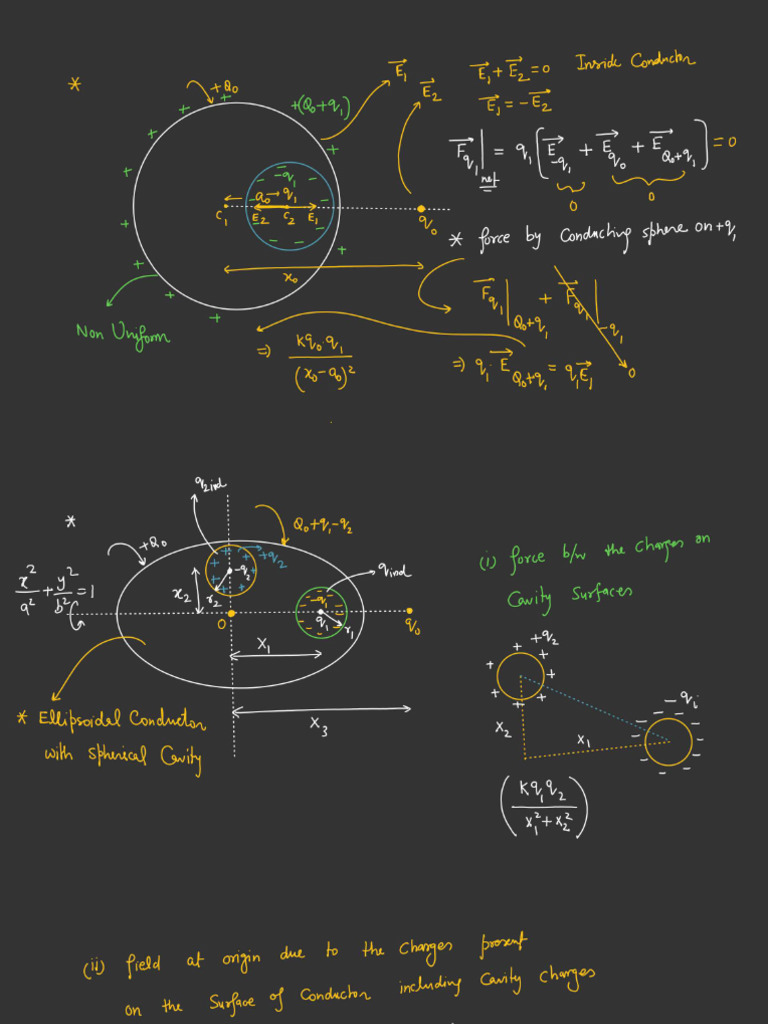 *
+Q₀
+(Q₀+q₁)
E₁→
E₂→
E₁→ + E₂→ = 0 Inside Conductor
E₁→ = -E₂→
F→q₁|net = q₁[E→-q₁ + E→q₀ + E→Q₀+q₁] = 0
0 0
-q₁
a₀→ q₁
C₁ E₂ C₂ E₁
q₀
x₀
Non Uniform
* force by Conducting sphere on +q₁
F→q₁|Q₀+q₁ + F→q₁|-q₁
0
⇒ kq₀·q₁/(x₀-a₀)²
⇒ q₁·E→Q₀+q₁ = q₁E→₁
*
q₂ind
+Q₀
Q₀+q₁-q₂
x²/a² + y²/b² = 1
+q₂
-q₂
r₂
x₂
qind
-q₁
q₁
r₁
O
q₀
X₁
X₃
* Ellipsoidal Conductor
with Spherical Cavity
(i) force b/w the Charges on
Cavity Surfaces
+q₂
-q₁
X₂
X₁
(kq₁q₂/x₁²+x₂²)
(ii) field at origin due to the Charges present
on the Surface of Conductor including Cavity Charges